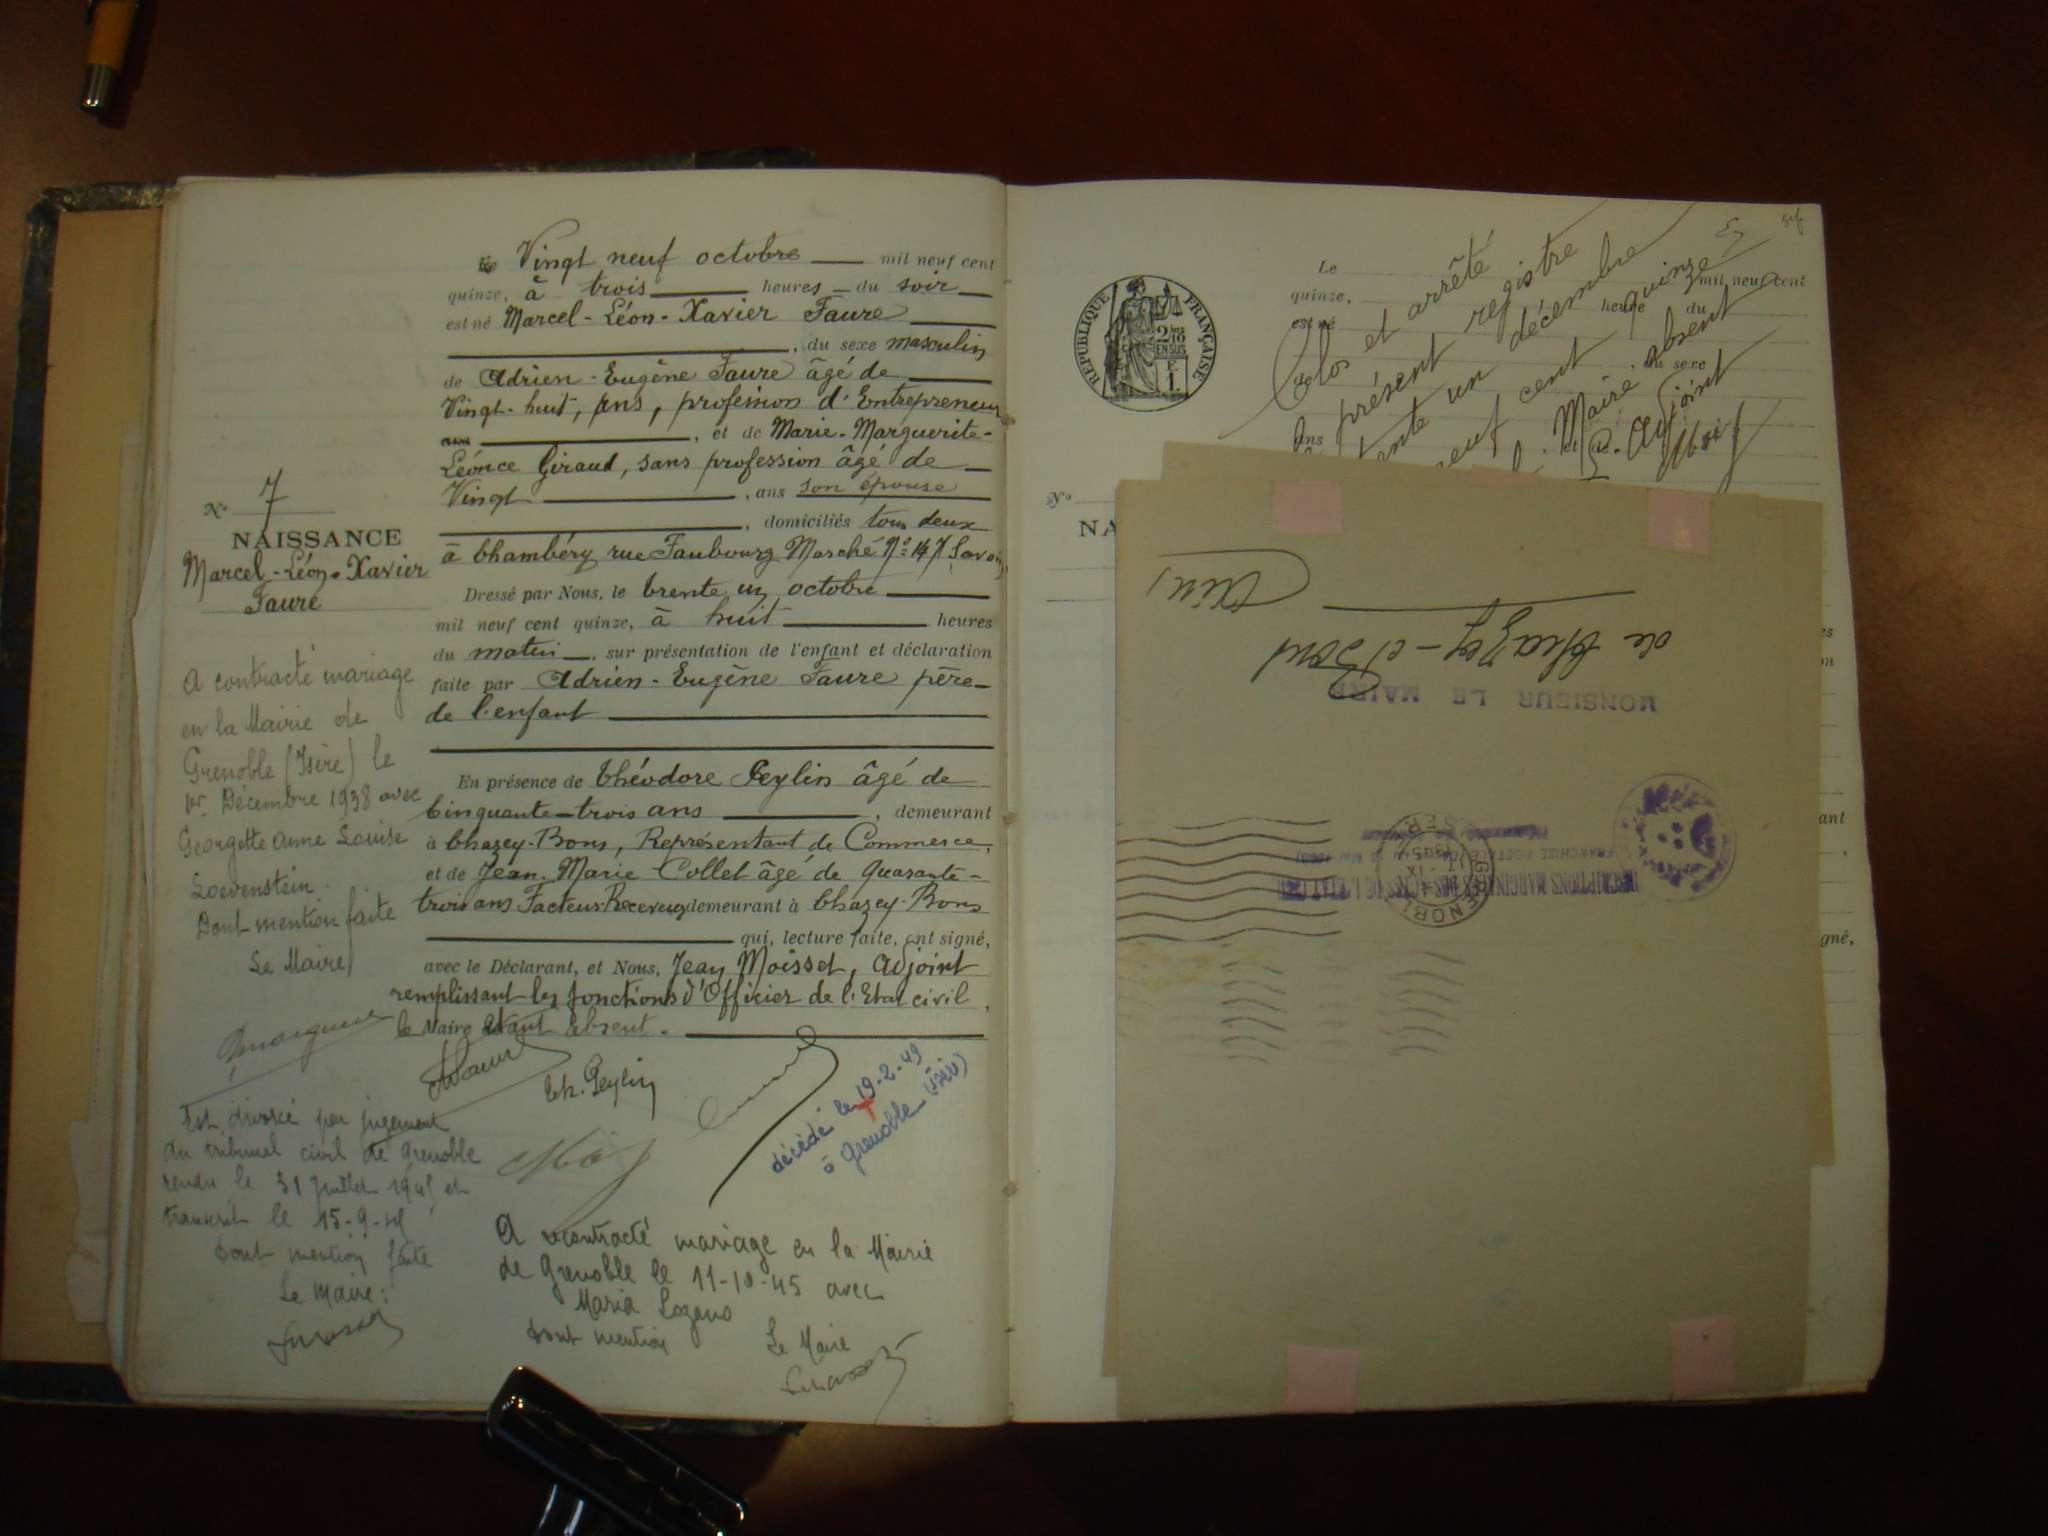 Le Vingt neuf octobre mil neuf cent
quinze, à trois heures du soir
est né Marcel-Léon-Xavier Faure
, du sexe masculin
de Adrien-Eugène Faure âgé de
Vingt-huit, ans, profession d'Entrepreneur
, et de Marie-Marguerite-
Léonce Giraud, sans profession âgé de
Vingt , ans son épouse
, domiciliés tous deux
à Chambéry rue Faubourg Maché No 147 Savoie,
Dressé par Nous, le trente un octobre
mil neuf cent quinze, à huit heures
du matin , sur présentation de l'enfant et déclaration
faite par Adrien-Eugène Faure père
de l'enfant
En présence de Théodore Peylin âgé de
Cinquante-trois ans , demeurant
à Chazey-Bons, Représentant de Commerce,
et de Jean-Marie Collet âgé de Quarante-
trois ans Facteur-Receveur demeurant à Chazey-Bons
qui, lecture faite, ont signé,
avec le Déclarant, et Nous, Jean Moisset, Adjoint
remplissant les fonctions d'Officier de l'Etat civil,
le Maire étant absent.
Th. Peylin
décédé le 19-2-49
à Grenoble (Isère)
A contracté mariage en la Mairie
de Grenoble le 11-10-45 avec
Maria Lozano
dont mention
Le Maire
No 7
NAISSANCE
Marcel-Léon-Xavier
Faure
A contracté mariage
en la Mairie de
Grenoble (Isère) le
1er Décembre 1938 avec
Georgette Anne Louise
Loevenstein.
Dont mention faite
Le Maire
Est divorcé par jugement
du tribunal civil de Grenoble
rendu le 31 Juillet et
transcrit le 15-9-
dont mention faite
Le Maire:
RÉPUBLIQUE FRANÇAISE
2/10
EN SUS
F
1
Le mil neuf cent
quinze, heure du
est né
du sexe
ans
et de
Clos et arrêté
le présent registre
trente un décembre
neuf cent quinze
Maire absent
Adjoint
No
NA
MONSIEUR LE MAIRE
de Chazey-Bons
(Ain)
INSCRIPTIONS MARGINALES DES ACTES DE L'ETAT CIVIL
GRENOBLE
ISERE
ant
gné,